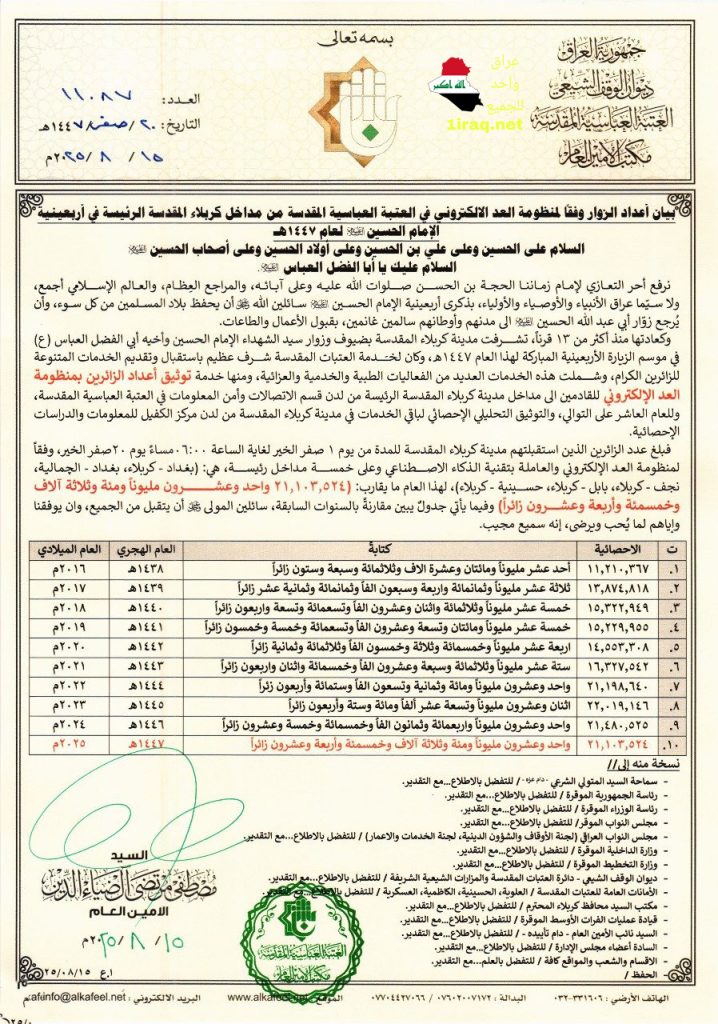 بسمه تعالى
جمهورية العراق
ديوان الوقف الشيعي
العتبة العباسية المقدسة
مكتب الأمين العام
عراق
واحد
للجميع
1iraq.net
الله اكبر
العدد: ١١٠٨٧
التاريخ: ٢٠/صفر/١٤٤٧هـ
١٥/ ٨ /٢٠٢٥م
بيان أعداد الزوار وفقاً لمنظومة العد الالكتروني في العتبة العباسية المقدسة من مداخل كربلاء المقدسة الرئيسة في أربعينية
الإمام الحسين لعام ١٤٤٧هـ
السلام على الحسين وعلى علي بن الحسين وعلى أولاد الحسين وعلى أصحاب الحسين
السلام عليك يا أبا الفضل العباس
نرفع أحر التعازي لإمام زماننا الحجة بن الحسن صلوات الله عليه وعلى آبائه، والمراجع العِظام، والعالم الإسلامي أجمع،
ولا سيّما عراق الأنبياء والأوصياء والأولياء، بذكرى أربعينية الإمام الحسين سائلين الله أن يحفظ بلاد المسلمين من كل سوء، وأن
يُرجع زوّار أبي عبد الله الحسين الى مدنهم وأوطانهم سالمين غانمين، بقبول الأعمال والطاعات.
وكعادتها منذ أكثر من ١٣ قرناً، تشرفت مدينة كربلاء المقدسة بضيوف وزوار سيد الشهداء الإمام الحسين وأخيه أبي الفضل العباس (ع)
في موسم الزيارة الأربعينية المباركة لهذا العام ١٤٤٧هـ، وكان لخدمة العتبات المقدسة شرف عظيم باستقبال وتقديم الخدمات المتنوعة
للزائرين الكرام، وشملت هذه الخدمات العديد من الفعاليات الطبية والخدمية والعزائية، ومنها خدمة توثيق أعداد الزائرين بمنظومة
العد الإلكتروني للقادمين الى مداخل مدينة كربلاء المقدسة الرئيسة من لدن قسم الاتصالات وأمن المعلومات في العتبة العباسية المقدسة،
وللعام العاشر على التوالي، والتوثيق التحليلي الإحصائي لباقي الخدمات في مدينة كربلاء المقدسة من لدن مركز الكفيل للمعلومات والدراسات
الإحصائية.
فبلغ عدد الزائرين الذين استقبلتهم مدينة كربلاء المقدسة للمدة من يوم ١ صفر الخير لغاية الساعة ٠٦:٠٠ مساءً يوم ٢٠صفر الخير، وفقاً
لمنظومة العد الإلكتروني والعاملة بتقنية الذكاء الاصطناعي وعلى خمسة مداخل رئيسة، هي: (بغداد - كربلاء، بغداد - الجمالية،
نجف - كربلاء، بابل - كربلاء، حسينية - كربلاء)، لهذا العام ما يقارب: (٢١,١٠٣,٥٢٤ واحد وعشرون مليوناً ومئة وثلاثة آلاف
وخمسمئة وأربعة وعشرون زائراً) وفيما يأتي جدولٌ يبين مقارنةً بالسنوات السابقة، سائلين المولى أن يتقبل من الجميع، وان يوفقنا
وإياهم لما يُحب ويرضى، إنه سميع مجيب.
ت الاحصائية كتابةً العام الهجري العام الميلادي
١. ١١,٢١٠,٣٦٧ أحد عشر مليوناً ومائتان وعشرة الاف وثلاثمائة وسبعة وستون زائراً ١٤٣٨هـ ٢٠١٦م
٢. ١٣,٨٧٤,٨١٨ ثلاثة عشر مليوناً وثمانمائة واربعة وسبعون الفاً وثمانمائة وثمانية عشر زائراً ١٤٣٩هـ ٢٠١٧م
٣. ١٥,٣٢٢,٩٤٩ خمسة عشر مليوناً وثلاثمائة واثنان وعشرون الفاً وتسعمائة وتسعة واربعون زائراً ١٤٤٠هـ ٢٠١٨م
٤. ١٥,٢٢٩,٩٥٥ خمسة عشر مليوناً ومائتان وتسعة وعشرون الفاً وتسعمائة وخمسة وخمسون زائراً ١٤٤١هـ ٢٠١٩م
٥. ١٤,٥٥٣,٣٠٨ اربعة عشر مليوناً وخمسمائة وثلاثة وخمسون الفاً وثلاثمائة وثمانية زائراً ١٤٤٢هـ ٢٠٢٠م
٦. ١٦,٣٢٧,٥٤٢ ستة عشر مليوناً وثلاثمائة وسبعة وعشرون الفاً وخمسمائة واثنان واربعون زائراً ١٤٤٣هـ ٢٠٢١م
٧. ٢١,١٩٨,٦٤٠ واحد وعشرون مليوناً ومائة وثمانية وتسعون الفاً وستمائة وأربعون زئراً ١٤٤٤هـ ٢٠٢٢م
٨. ٢٢,٠١٩,١٤٦ اثنان وعشرون مليوناً وتسعة عشر ألفاً ومائة وستة وأربعون زائراً ١٤٤٥هـ ٢٠٢٣م
٩. ٢١,٤٨٠,٥٢٥ واحد وعشرون مليوناً واربعمائة وثمانون الفاً وخمسمائة وخمسة وعشرون زائراً ١٤٤٦هـ ٢٠٢٤م
١٠. ٢١,١٠٣,٥٢٤ واحد وعشرون مليوناً ومئة وثلاثة آلاف وخمسمئة وأربعة وعشرون زائراً ١٤٤٧هـ ٢٠٢٥م
نسخة منه إلى//
- سماحة السيد المتولي الشرعي - دام عزه - / للتفضل بالاطلاع...مع التقدير.
- رئاسة الجمهورية الموقرة / للتفضل بالاطلاع...مع التقدير.
- رئاسة الوزراء الموقرة / للتفضل بالاطلاع...مع التقدير.
- مجلس النواب الموقر/ للتفضل بالاطلاع...مع التقدير.
- مجلس النواب العراقي (لجنة الأوقاف والشؤون الدينية، لجنة الخدمات والاعمار) / للتفضل بالاطلاع...مع التقدير.
- وزارة الداخلية الموقرة / للتفضل بالاطلاع...مع التقدير.
- وزارة التخطيط الموقرة / للتفضل بالاطلاع...مع التقدير.
- ديوان الوقف الشيعي - دائرة العتبات المقدسة والمزارات الشيعية الشريفة / للتفضل بالاطلاع...مع التقدير.
- الأمانات العامة للعتبات المقدسة / العلوية، الحسينية، الكاظمية، العسكرية / للتفضل بالاطلاع...مع التقدير.
- مكتب السيد محافظ كربلاء المحترم / للتفضل بالاطلاع...مع التقدير.
- قيادة عمليات الفرات الأوسط الموقرة / للتفضل بالاطلاع...مع التقدير.
- السيد نائب الأمين العام - دام تأييده - / للتفضل بالاطلاع...مع التقدير.
- السادة أعضاء مجلس الإدارة / للتفضل بالاطلاع...مع التقدير.
- الاقسام والشعب والمواقع كافة / للتفضل بالعلم...مع التقدير.
- الحفظ /
السيد
مصطفى مرتضى آل ضياء الدين
الأمين العام
١٥/ ٨ /٢٠٢٥م
العتبة العباسية المقدسة
مكتب الأمين العام
ا.ع ٢٥/٠٨/١٥
الهاتف الأرضي: ٣٣١٦٠٦-٠٣٢ البدالة: ٠٧٦٠٢٠٠٧١٧٢ / ٠٧٧٠٤٤٢٧٠٦٦ الموقع: www.alkafeel.net البريد الالكتروني: info@alkafeel.net